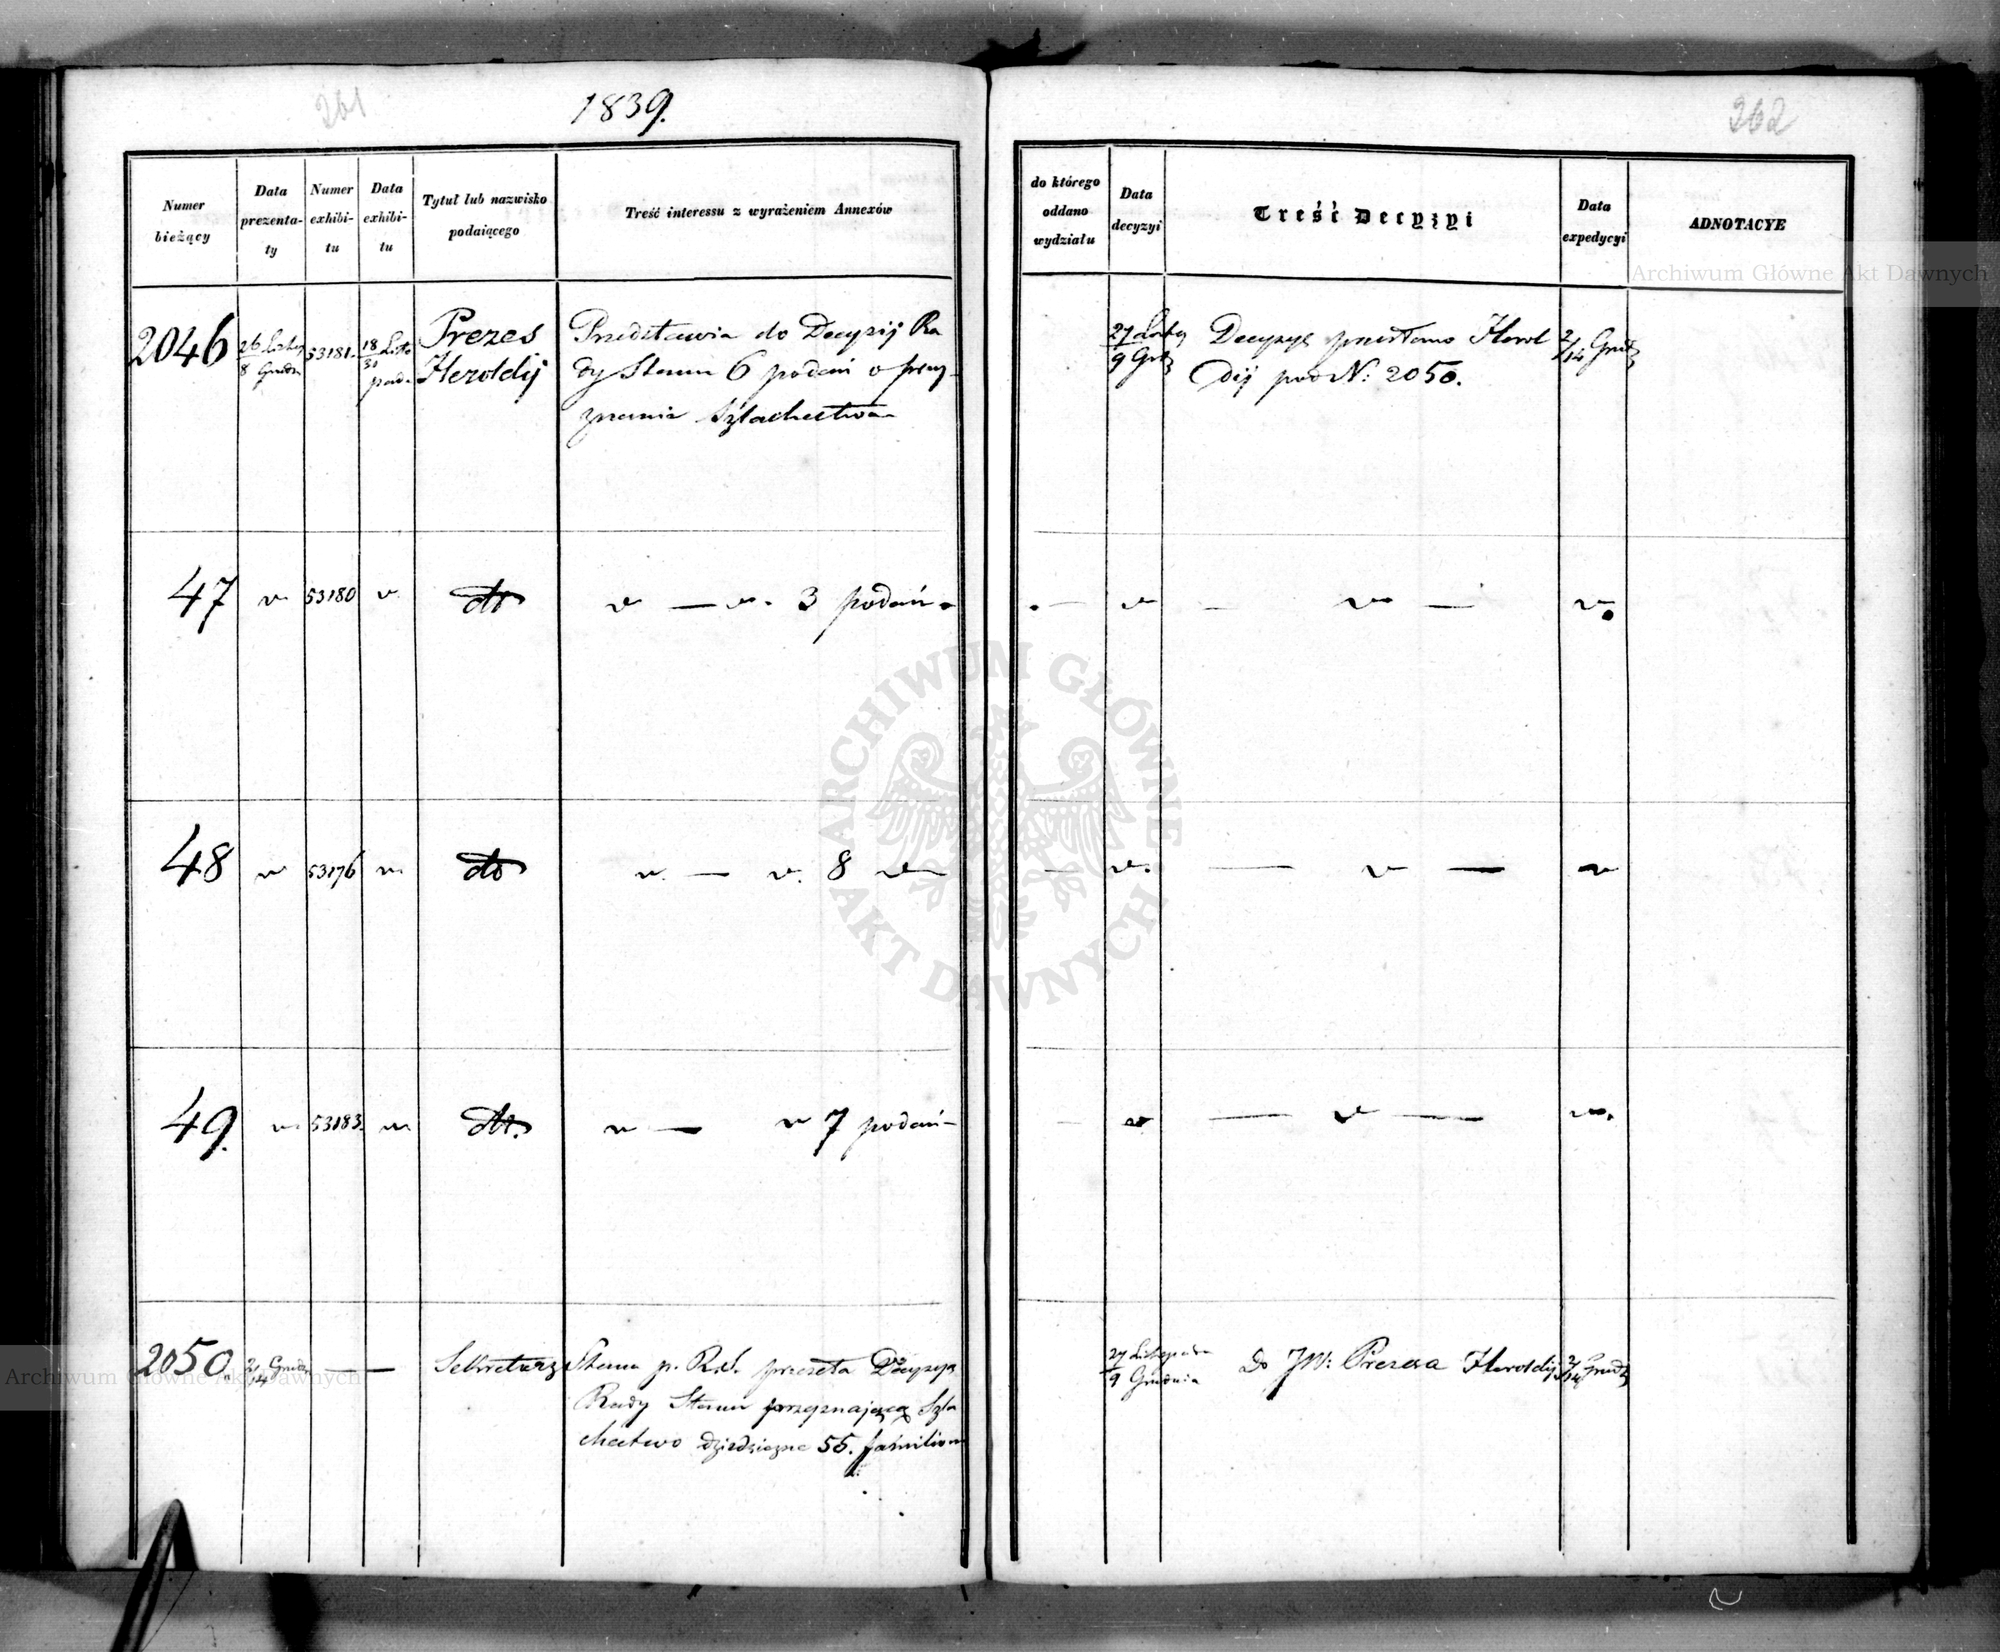 261
1839.
262
Numer bieżący
Data prezenta-ty
Numer exhibi-tu
Data exhibi-tu
Tytuł lub nazwisko podaiącego
Treść interessu z wyrażeniem Annexów
do którego oddano wydziału
Data decyzyi
Treść Decyzyi
Data expedycyi
ADNOTACYE
2046
26 Listop
8 Grudn
53181.
18 Listo
30 pada
Prezes
Heroldij
Przedstawia do Decyzij Ra
dy Stanu 6 podań o przy-
znanie Szlachectwa
27 Listop
9 Grd
Decyzyę przesłano Herol
dij pod N: 2050.
2/14 Grud
47
v.
53180
v.
dto
v — v. 3 podań.
. — v — v. — v.
48
v
53176
v.
dto
v. — v. 8 v
— v. — v — v
49.
v.
53183.
v.
dto.
v — v 7 podań —
— v. — v — v.
2050.
2/14 Grudn
— —
Sekretarz
Stanu p. R. S. przesyła Decyzyą
Rady Stanu przyznającą Szla
chectwo dziedziczne 55. familiom
27 Listopada
9 Grudnia
Do JW: Prezesa Heroldij
2/14 Grud
Archiwum Główne Akt Dawnych
ARCHIWUM GŁÓWNE AKT DAWNYCH
Archiwum Główne Akt Dawnych